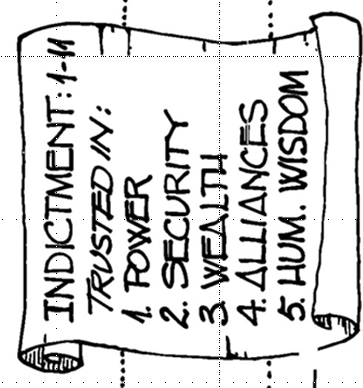 INDICTMENT: 1-11
TRUSTED IN:
1. POWER
2. SECURITY
3 WEALTH
4. ALLIANCES
5. HUM. WISDOM